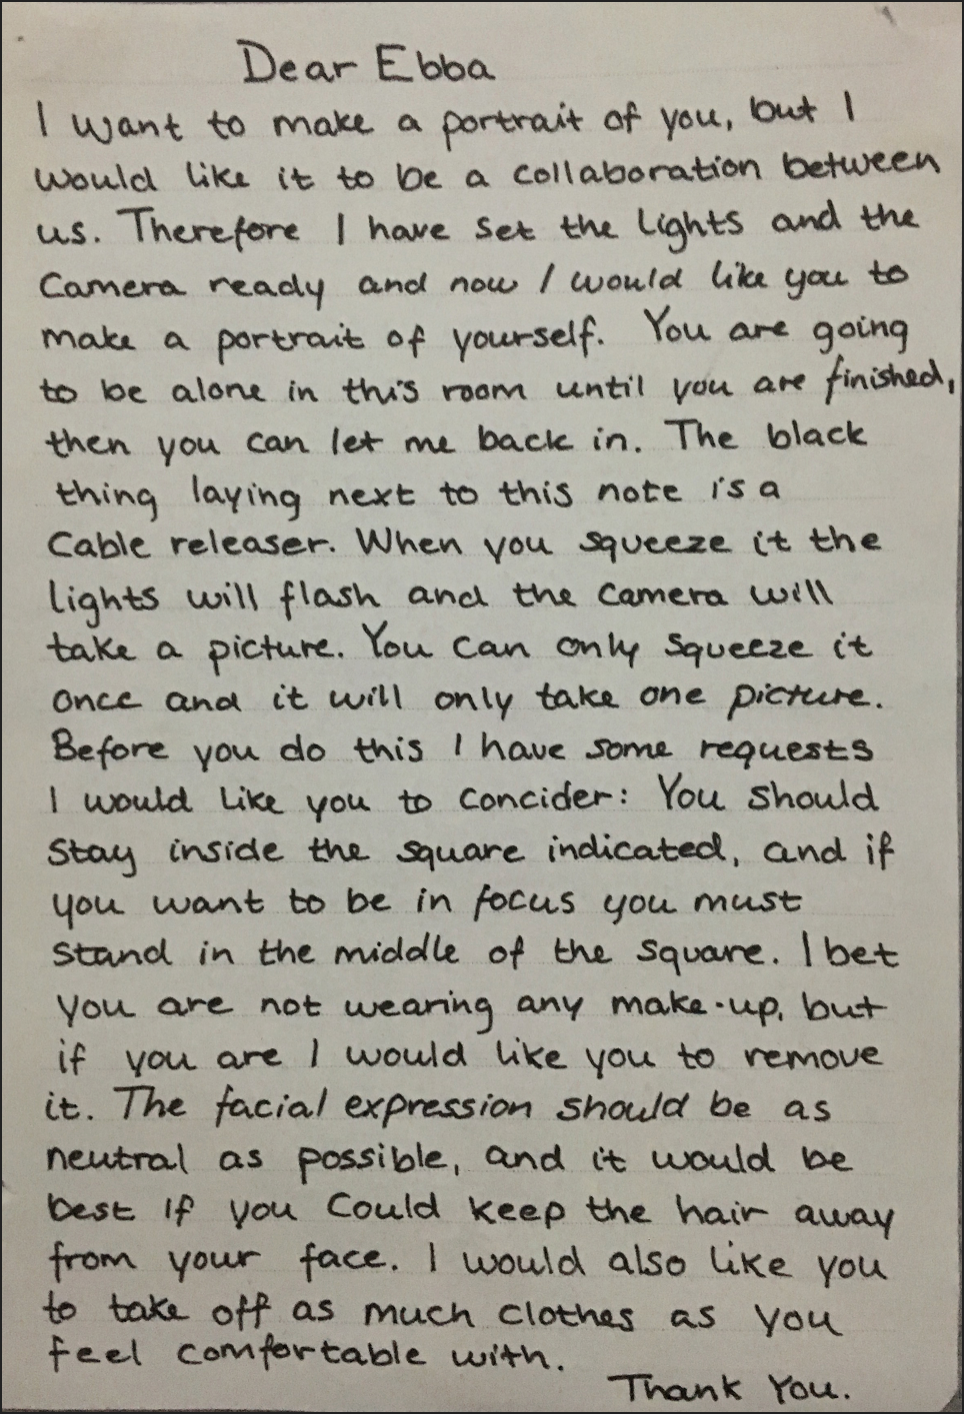 Dear Ebba
I want to make a portrait of you, but I
would like it to be a collaboration between
us. Therefore I have set the lights and the
camera ready and now I would like you to
make a portrait of yourself. You are going
to be alone in this room until you are finished,
then you can let me back in. The black
thing laying next to this note is a
cable releaser. When you squeeze it the
lights will flash and the camera will
take a picture. You can only squeeze it
once and it will only take one picture.
Before you do this I have some requests
I would like you to concider: You should
stay inside the square indicated, and if
you want to be in focus you must
stand in the middle of the square. I bet
you are not wearing any make-up, but
if you are I would like you to remove
it. The facial expression should be as
neutral as possible, and it would be
best if you could keep the hair away
from your face. I would also like you
to take off as much clothes as you
feel comfortable with.
Thank You.